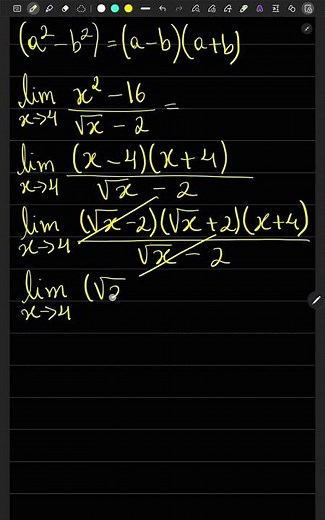 (a² − b²) = (a − b)(a + b)
lim x→4 (x² − 16)/(√x − 2) =
lim x→4 (x − 4)(x + 4)/(√x − 2)
lim x→4 (√x − 2)(√x + 2)(x + 4)/(√x − 2)
lim x→4 (√